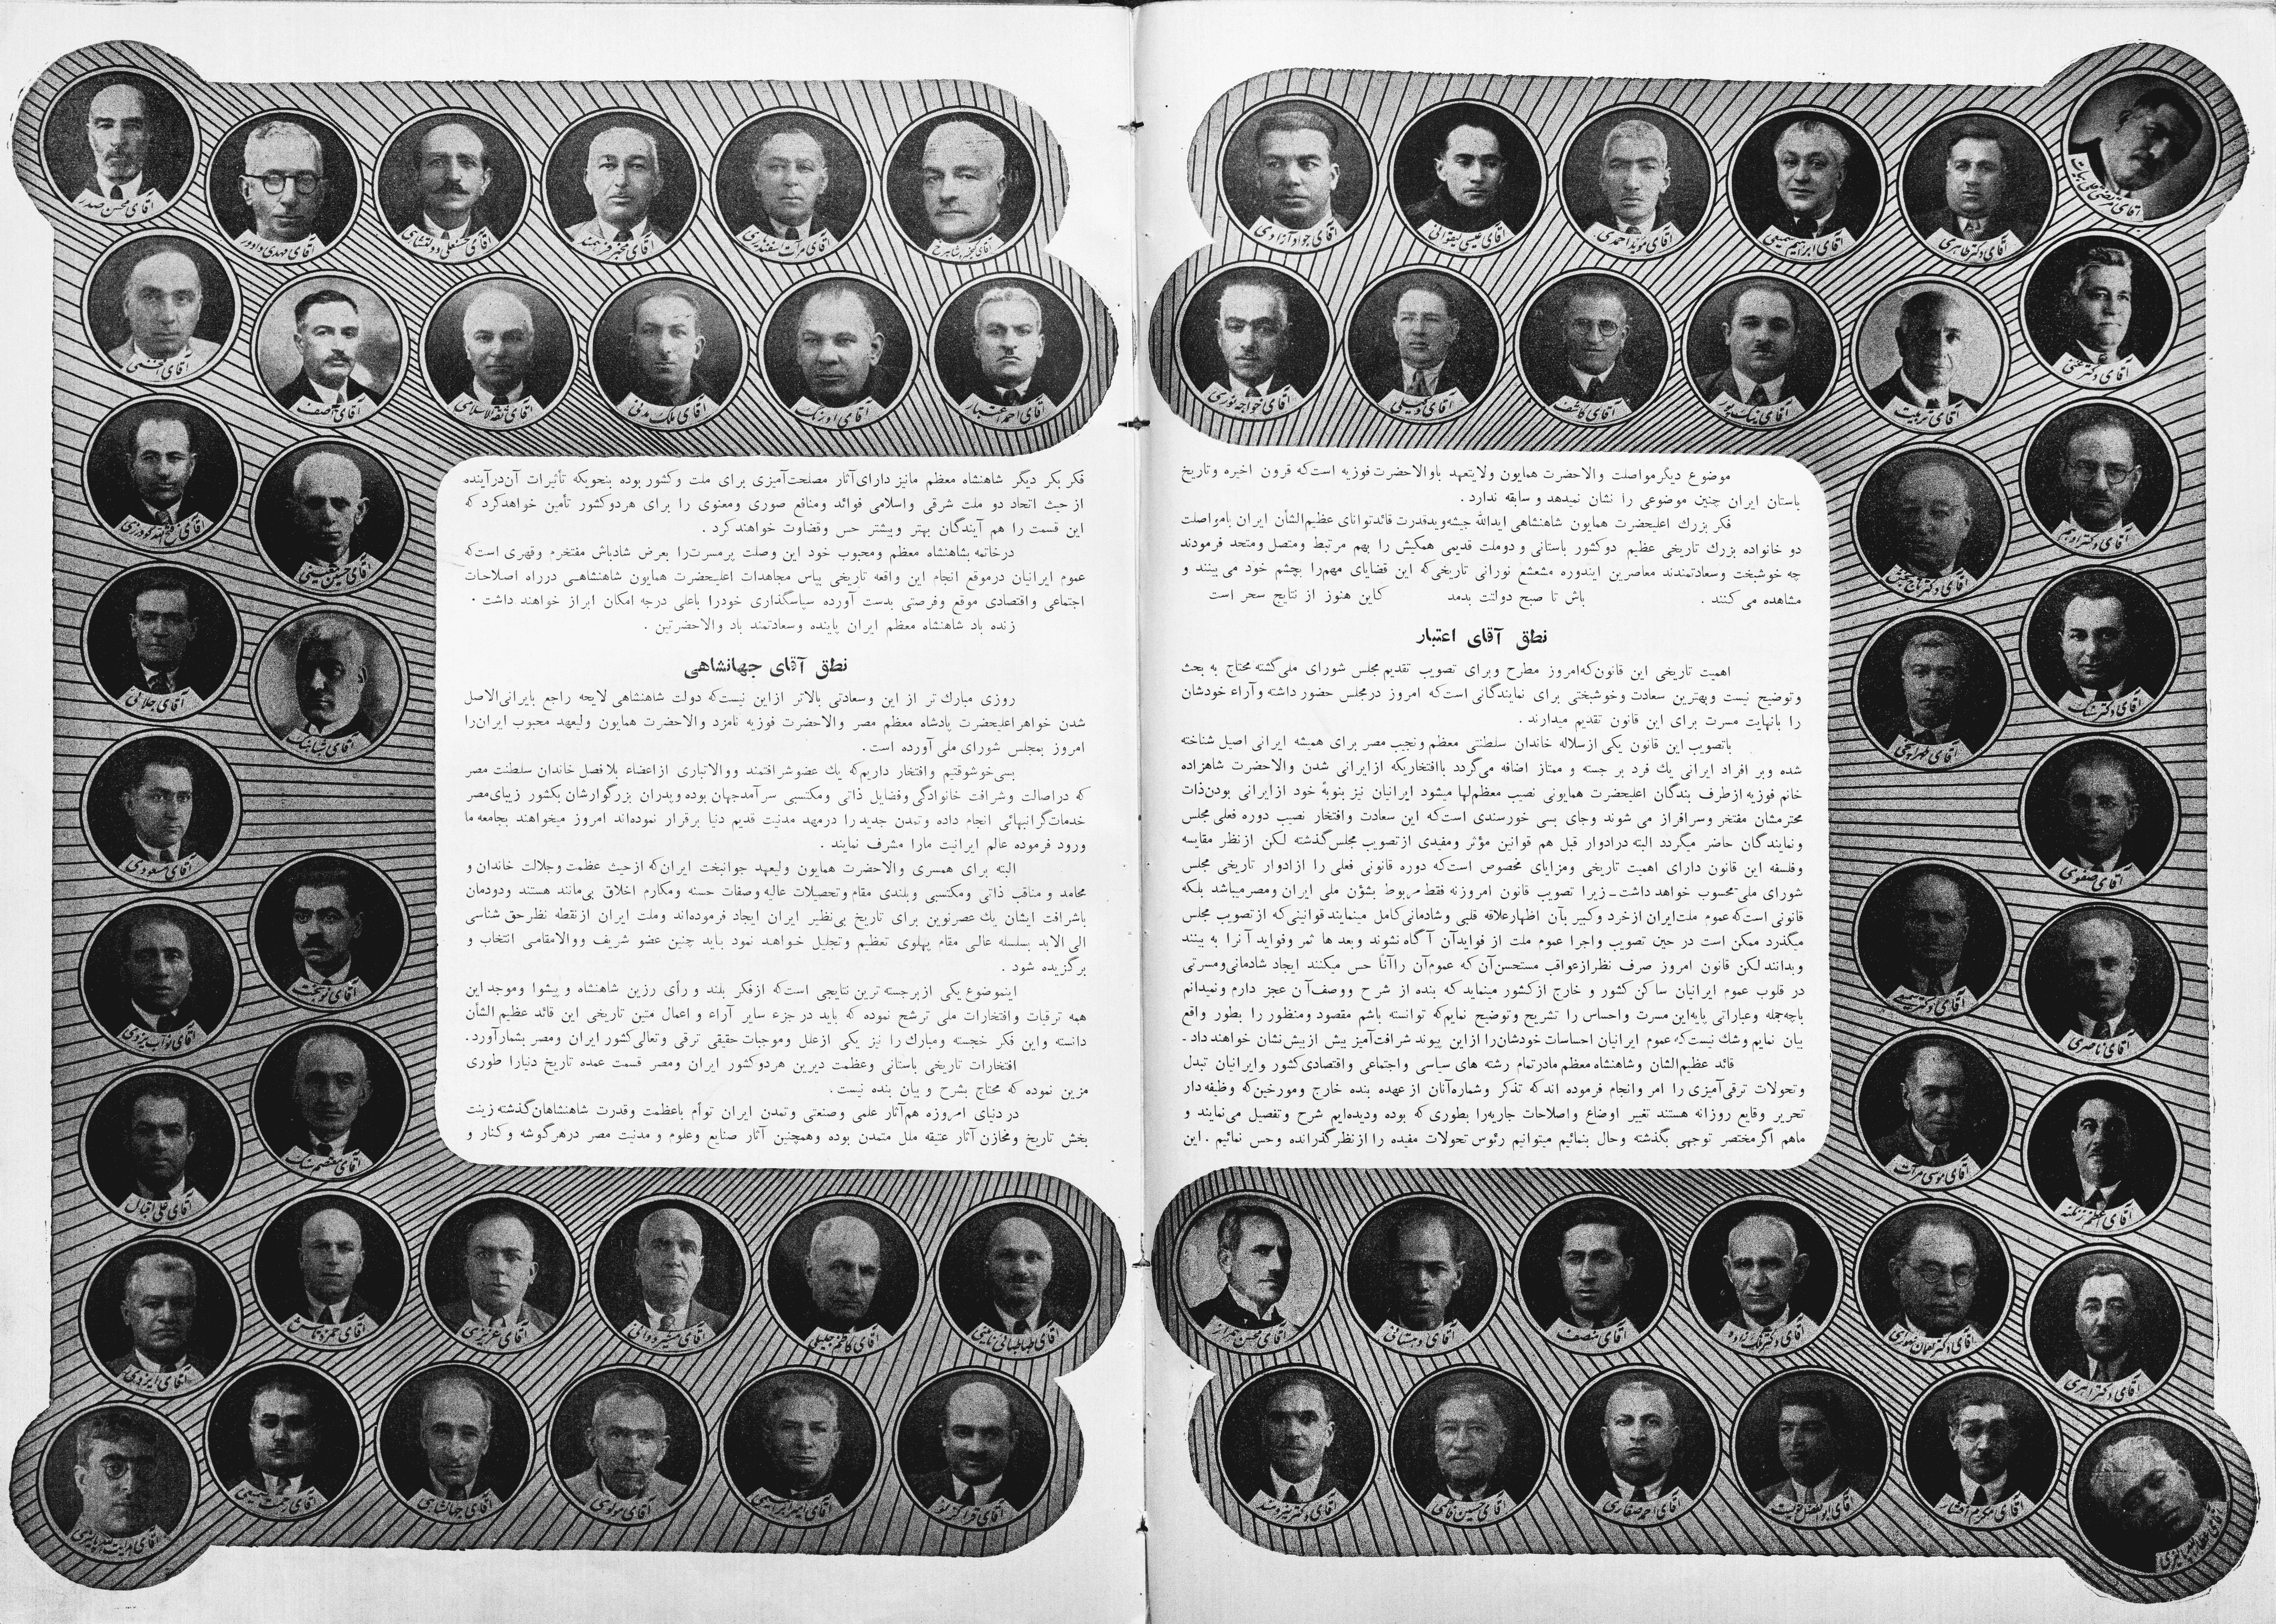 موضوع دیگر مواصلت والاحضرت همایون ولایتعهد باوالاحضرت فوزیه است‌که قرون اخیره وتاریخ
باستان ایران چنین موضوعی را نشان نمیدهد و سابقه ندارد .
فکر بزرك اعلیحضرت همایون شاهنشاهی ایدالله جیشه‌ویدقدرت قائدتوانای عظیم‌الشأن ایران بامواصلت
دو خانواده بزرك تاریخی عظیم دوکشور باستانی ودوملت قدیمی همکیش را بهم مرتبط ومتصل ومتحد فرمودند
چه خوشبخت وسعادتمندند معاصرین ایندوره مشعشع نورانی تاریخی‌که این قضایای مهم‌را بچشم خود می‌بینند و
مشاهده می‌کنند . باش تا صبح دولتت بدمد کاین هنوز از نتایج سحر است
نطق آقای اعتبار
اهمیت تاریخی این قانون‌که‌امروز مطرح وبرای تصویب تقدیم مجلس شورای ملی‌گشته محتاج به بحث
وتوضیح نیست وبهترین سعادت وخوشبختی برای نمایندگانی است‌که امروز درمجلس حضور داشته وآراء خودشان
را بانهایت مسرت برای این قانون تقدیم میدارند .
باتصویب این قانون یکی ازسلاله خاندان سلطنتی معظم ونجیب مصر برای همیشه ایرانی اصیل شناخته
شده وبر افراد ایرانی یك فرد بر جسته و ممتاز اضافه می‌گردد باافتخاریکه ازایرانی شدن والاحضرت شاهزاده
خانم فوزیه ازطرف بندگان اعلیحضرت همایونی نصیب معظم‌لها میشود ایرانیان نیز بنوبهٔ خود ازایرانی بودن‌ذات
محترمشان مفتخر وسرافراز می شوند وجای بسی خورسندی است‌که این سعادت وافتخار نصیب دوره فعلی مجلس
ونمایندگان حاضر میگردد البته درادوار قبل هم قوانین مؤثر ومفیدی ازتصویب مجلس‌گذشته لکن ازنظر مقایسه
وفلسفه این قانون دارای اهمیت تاریخی ومزایای مخصوص است‌که دوره قانونی فعلی را ازادوار تاریخی مجلس
شورای ملی‌محسوب خواهدداشت ـ زیرا تصویب قانون امروزنه فقط مربوط بشؤن ملی ایران ومصرمیباشد بلکه
قانونی است‌که عموم ملت‌ایران ازخرد وکبیر بآن اظهارعلاقه قلبی وشادمانی‌کامل مینمایند قوانینی‌که ازتصویب مجلس
میگذرد ممکن است در حین تصویب واجرا عموم ملت از فوایدآن آگاه نشوند وبعد ها ثمر وفواید آنرا به بینند
وبدانند لکن قانون امروز صرف نظرازعواقب مستحسن‌آن‌که عموم‌آن راآناً حس میکنند ایجاد شادمانی‌ومسرتی
در قلوب عموم ایرانیان ساکن کشور و خارج ازکشور مینماید که بنده از شرح ووصف‌آن عجز دارم ونمیدانم
باچه‌جمله وعباراتی پایه‌این مسرت واحساس را تشریح وتوضیح نمایم‌که توانسته باشم مقصود ومنظور را بطور واقع
بیان نمایم وشك نیست‌که عموم ایرانیان احساسات خودشان‌را ازاین پیوند شرافت‌آمیز بیش ازپیش‌نشان خواهندداد ـ
قائد عظیم‌الشان وشاهنشاه معظم مادرتمام رشته های سیاسی واجتماعی واقتصادی‌کشور وایرانیان تبدل
وتحولات ترقی‌آمیزی را امر وانجام فرموده اندکه تذکر وشماره‌آنان ازعهده بنده خارج ومورخین‌که وظیفه‌دار
تحریر وقایع روزانه هستند تغییر اوضاع واصلاحات جاریه‌را بطوری‌که بوده ودیده‌ایم شرح وتفصیل می‌نمایند و
ماهم اگرمختصر توجهی بگذشته وحال بنمائیم میتوانیم رئوس تحولات مفیده را ازنظرگذرانده وحس نمائیم . این
فکر بکر دیگر شاهنشاه معظم مانیز دارای‌آثار مصلحت‌آمیزی برای ملت وکشور بوده بنحویکه تأثیرات آن‌درآینده
از حیث اتحاد دو ملت شرقی واسلامی فوائد ومنافع صوری ومعنوی را برای هردوکشور تأمین خواهدکرد که
این قسمت را هم آیندگان بهتر وبیشتر حس وقضاوت خواهندکرد .
درخاتمه بشاهنشاه معظم ومحبوب خود این وصلت پرمسرت‌را بعرض شادباش مفتخرم وقهری است‌که
عموم ایرانیان درموقع انجام این واقعه تاریخی بپاس مجاهدات اعلیحضرت همایون شاهنشاهی درراه اصلاحات
اجتماعی واقتصادی موقع وفرصتی بدست آورده سپاسگذاری خودرا باعلی درجه امکان ابراز خواهند داشت .
زنده باد شاهنشاه معظم ایران پاینده وسعادتمند باد والاحضرتین .
نطق آقای جهانشاهی
روزی مبارك تر از این وسعادتی بالاتر ازاین نیست‌که دولت شاهنشاهی لایحه راجع بایرانی‌الاصل
شدن خواهراعلیحضرت پادشاه معظم مصر والاحضرت فوزیه نامزد والاحضرت همایون ولیعهد محبوب ایران‌را
امروز بمجلس شورای ملی آورده است .
بسی‌خوشوقتیم وافتخار داریم‌که یك عضوشرافتمند ووالاتباری ازاعضاء بلافصل خاندان سلطنت مصر
که دراصالت وشرافت خانوادگی وفضایل ذاتی ومکتسبی سرآمدجهان بوده وپدران بزرگوارشان بکشور زیبای‌مصر
خدمات‌گرانبهائی انجام داده وتمدن جدیدرا درمهد مدنیت قدیم دنیا برقرار نموده‌اند امروز میخواهند بجامعه ما
ورود فرموده عالم ایرانیت مارا مشرف نمایند .
البته برای همسری والاحضرت همایون ولیعهد جوانبخت ایران‌که ازحیث عظمت وجلالت خاندان و
محامد و مناقب ذاتی ومکتسبی وبلندی مقام وتحصیلات عالیه وصفات حسنه ومکارم اخلاق بی‌مانند هستند ودودمان
باشرافت ایشان یك عصرنوین برای تاریخ بی‌نظیر ایران ایجاد فرموده‌اند وملت ایران ازنقطه نظرحق شناسی
الی الابد بسلسله عالی مقام پهلوی تعظیم وتجلیل خواهد نمود باید چنین عضو شریف ووالامقامی انتخاب و
برگزیده شود .
اینموضوع یکی ازبرجسته ترین نتایجی است‌که ازفکر بلند و رأی رزین شاهنشاه و پیشوا وموجد این
همه ترقیات وافتخارات ملی ترشح نموده که باید در جزء سایر آراء و اعمال متین تاریخی این قائد عظیم الشأن
دانسته واین فکر خجسته ومبارك را نیز یکی ازعلل وموجبات حقیقی ترقی وتعالی‌کشور ایران ومصر بشمارآورد.
افتخارات تاریخی باستانی وعظمت دیرین هردوکشور ایران ومصر قسمت عمده تاریخ دنیارا طوری
مزین نموده که محتاج بشرح و بیان بنده نیست.
در دنیای امروزه هم‌آثار علمی وصنعتی وتمدن ایران توأم باعظمت وقدرت شاهنشاهان‌گذشته زینت
بخش تاریخ ومخازن آثار عتیقه ملل متمدن بوده وهمچنین آثار صنایع وعلوم و مدنیت مصر درهرگوشه وکنار و
آقای جواد آزادی
آقای عیسی لیقوانی
آقای مؤید احمدی
آقای ابراهیم سمیعی
آقای دکتر طاهری
آقای مرتضی قلی بیات
آقای خواجه نوری
آقای وکیلی
آقای کاشف
آقای نیک پور
آقای تربیت
آقای دکتر غنی
آقای دکتر ادهم
آقای دکتر تاج بخش
آقای دکتر سنگ
آقای طهرانچی
آقای صفوی
آقای دکتر سمیعی
آقای ناصری
آقای موسی مرآت
آقای اعظم زنگنه
آقای دهستانی
آقای منصف
آقای دکتر ملک زاده
آقای دکتر لقمان نهورای
آقای دکتر راهبری
آقای دکتر نیرومند
آقای احمد صفاری
آقای محرم افشار
آقای محسن صدر
آقای مهدی داودر
آقای حشمتعلی دولتشاهی
آقای مخبر فرهمند
آقای مرآت اسفندیاری
آقای کیخسرو شاهرخ
آقای آصف
آقای ثقةالاسلامی
آقای ملک مدنی
آقای اورنگ
آقای احمد اعتبار
آقای جلائی
آقای شباهنگ
آقای مسعودی
آقای نوبخت
آقای نواب یزدی
آقای معتصم سنگ
آقای علی اقبال
آقای حمزه تاش
آقای عزیزی
آقای شیروانی
آقای کاظم جلیلی
آقای طباطبائی نائینی
آقای ایزدی
آقای جهانشاهی
آقای مولوی
آقای امیر ابراهیمی
آقای قراگزلو